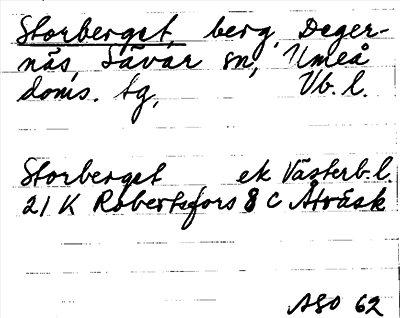 Storberget, berg, Deger-
näs, Sävar sn, Umeå
doms. tg, Vb. l.
Storberget ek Västerb. l.
21 K Robertsfors 8 c Åträsk
ASO 62